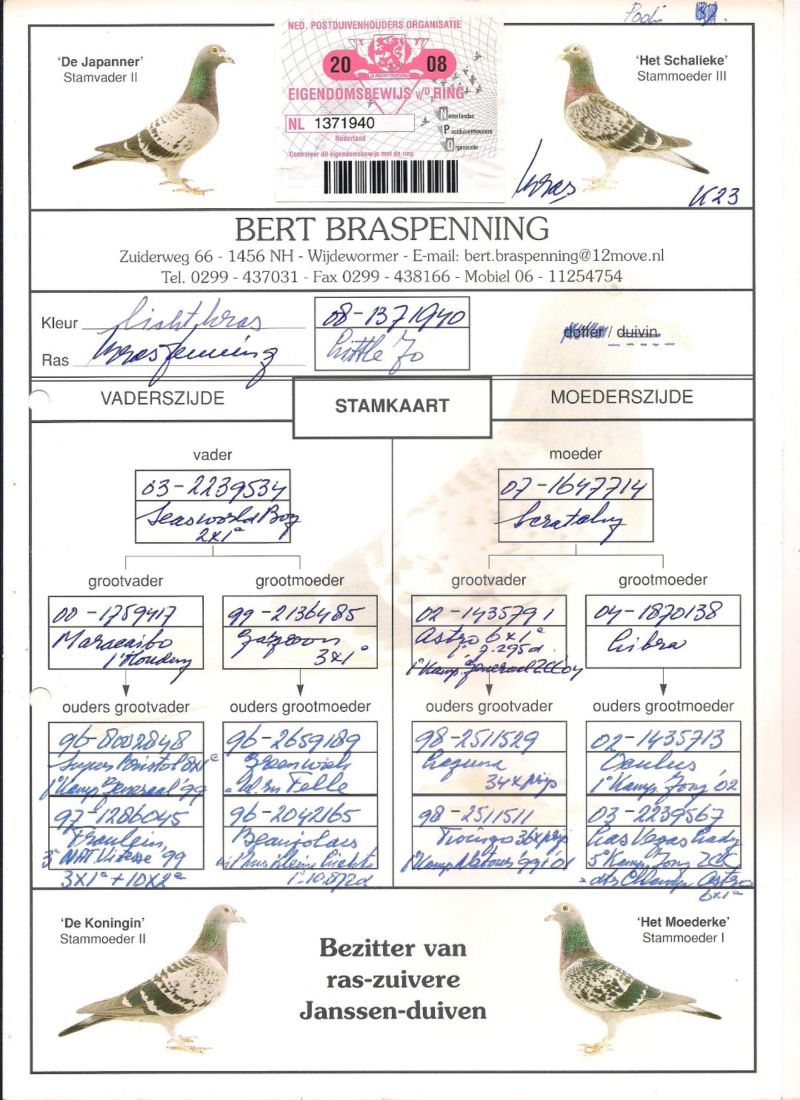 Pooli
NED. POSTDUIVENHOUDERS ORGANISATIE
20 08
EIGENDOMSBEWIJS v/D RING
NL 1371940
Nederland
Nederlandse
Postduivenhouders
Organisatie
Controleer dit eigendomsbewijs met de ring
'De Japanner'
Stamvader II
'Het Schalieke'
Stammoeder III
kras
K23
BERT BRASPENNING
Zuiderweg 66 - 1456 NH - Wijdewormer - E-mail: bert.braspenning@12move.nl
Tel. 0299 - 437031 - Fax 0299 - 438166 - Mobiel 06 - 11254754
Kleur licht kras
08-1371940
doffer / duivin
Ras Braspenning
Little Jo
VADERSZIJDE
STAMKAART
MOEDERSZIJDE
vader
moeder
03-2239534
07-1647714
Seaworld Boy
2x1e
Scratchy
grootvader
grootmoeder
grootvader
grootmoeder
00-1759417
99-2136485
02-1435791
04-1870138
Maracaibo
3x1e
Astro 6x1e
Libra
ouders grootvader
ouders grootmoeder
ouders grootvader
ouders grootmoeder
96-8002848
96-2659189
98-2511529
02-1435713
Super Bristol 8x1e
Greenwich
Laguna
Oculus
1e Kamp Generaal '99
34x prijs
1e Kamp Jong '02
97-1286045
96-2042165
98-2511511
03-2239567
Fraulein
Beaujolais
36x prijs
Las Vegas Lady
3e NAT Vitesse '99
3x1e + 10x2e
6x1e
'De Koningin'
Stammoeder II
'Het Moederke'
Stammoeder I
Bezitter van
ras-zuivere
Janssen-duiven